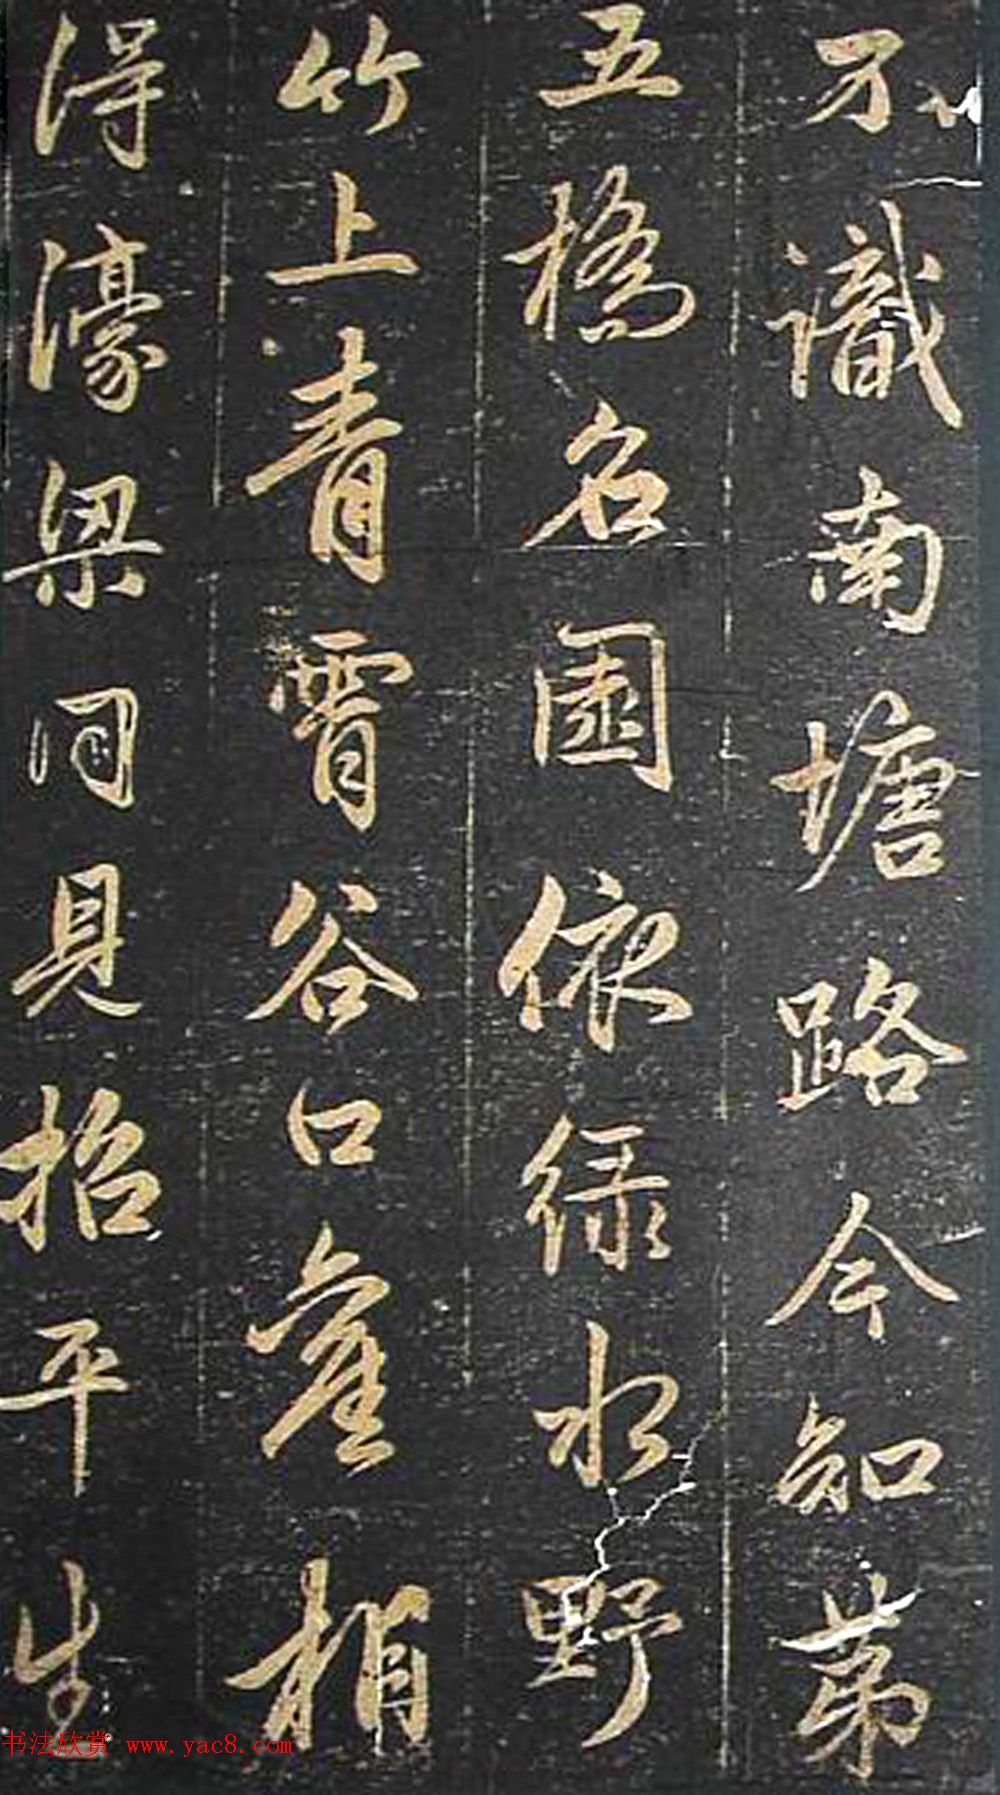 不識南塘路今知第
五橋名園依綠水野
竹上青霄谷口舊相
得濠梁同見招平生
书法欣赏 www.yac8.com